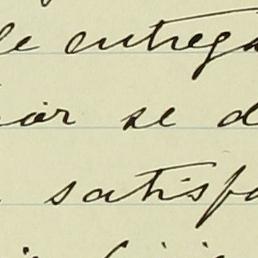 le entrega
ar se d
satisfa